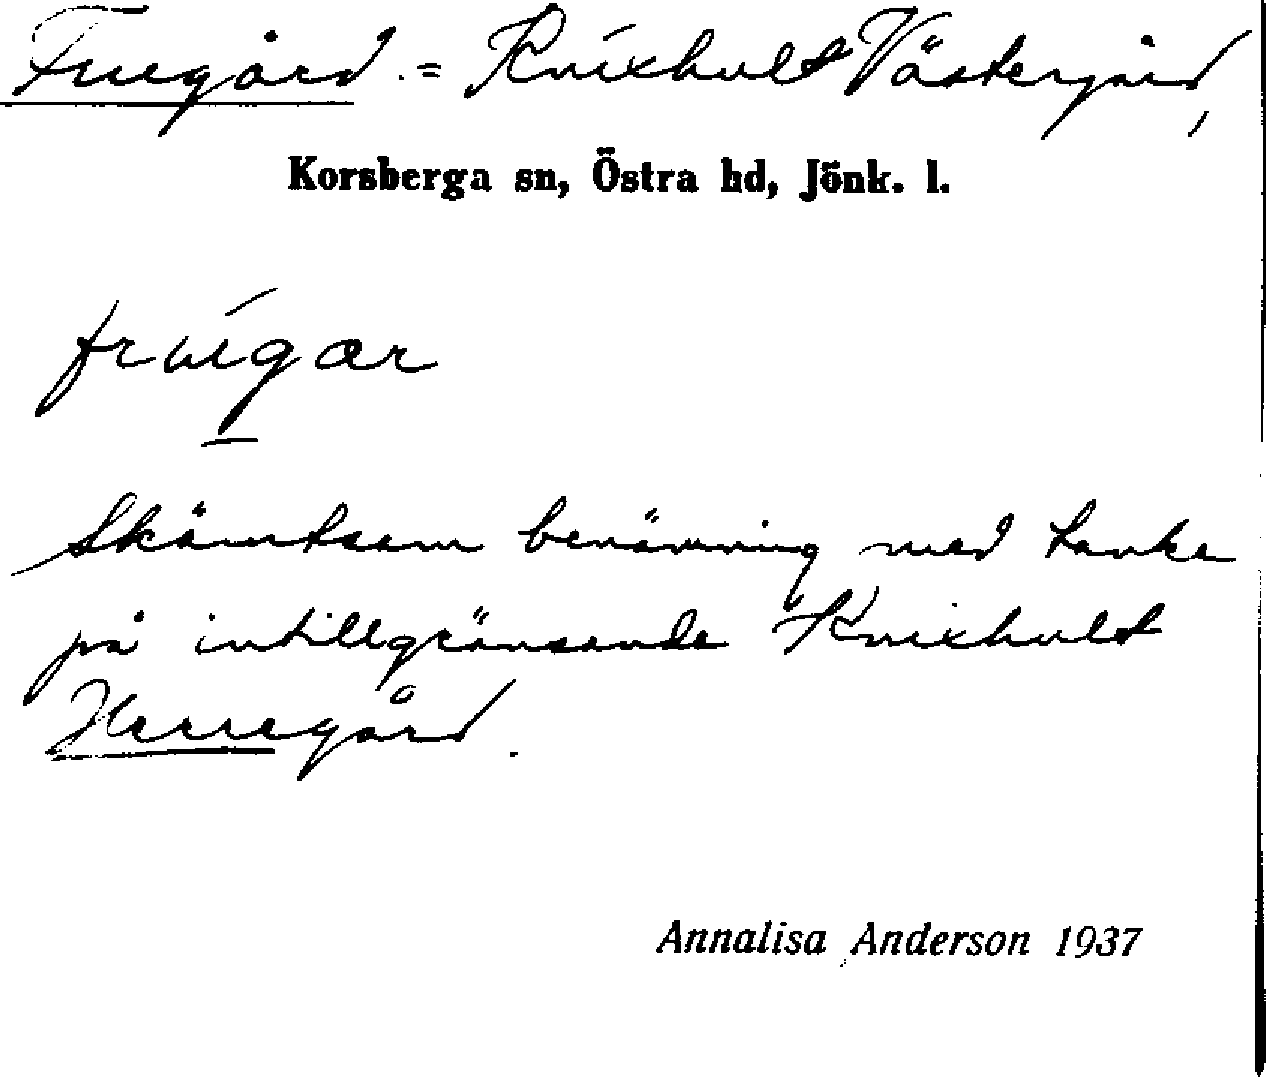 Fruegård. = Knixhult Västergård,
Korsberga sn, Östra hd, Jönk. l.
frúegar
Skämtsam benämning med tanke
på intillgränsande Knixhult
Herregård.
Annalisa Anderson 1937